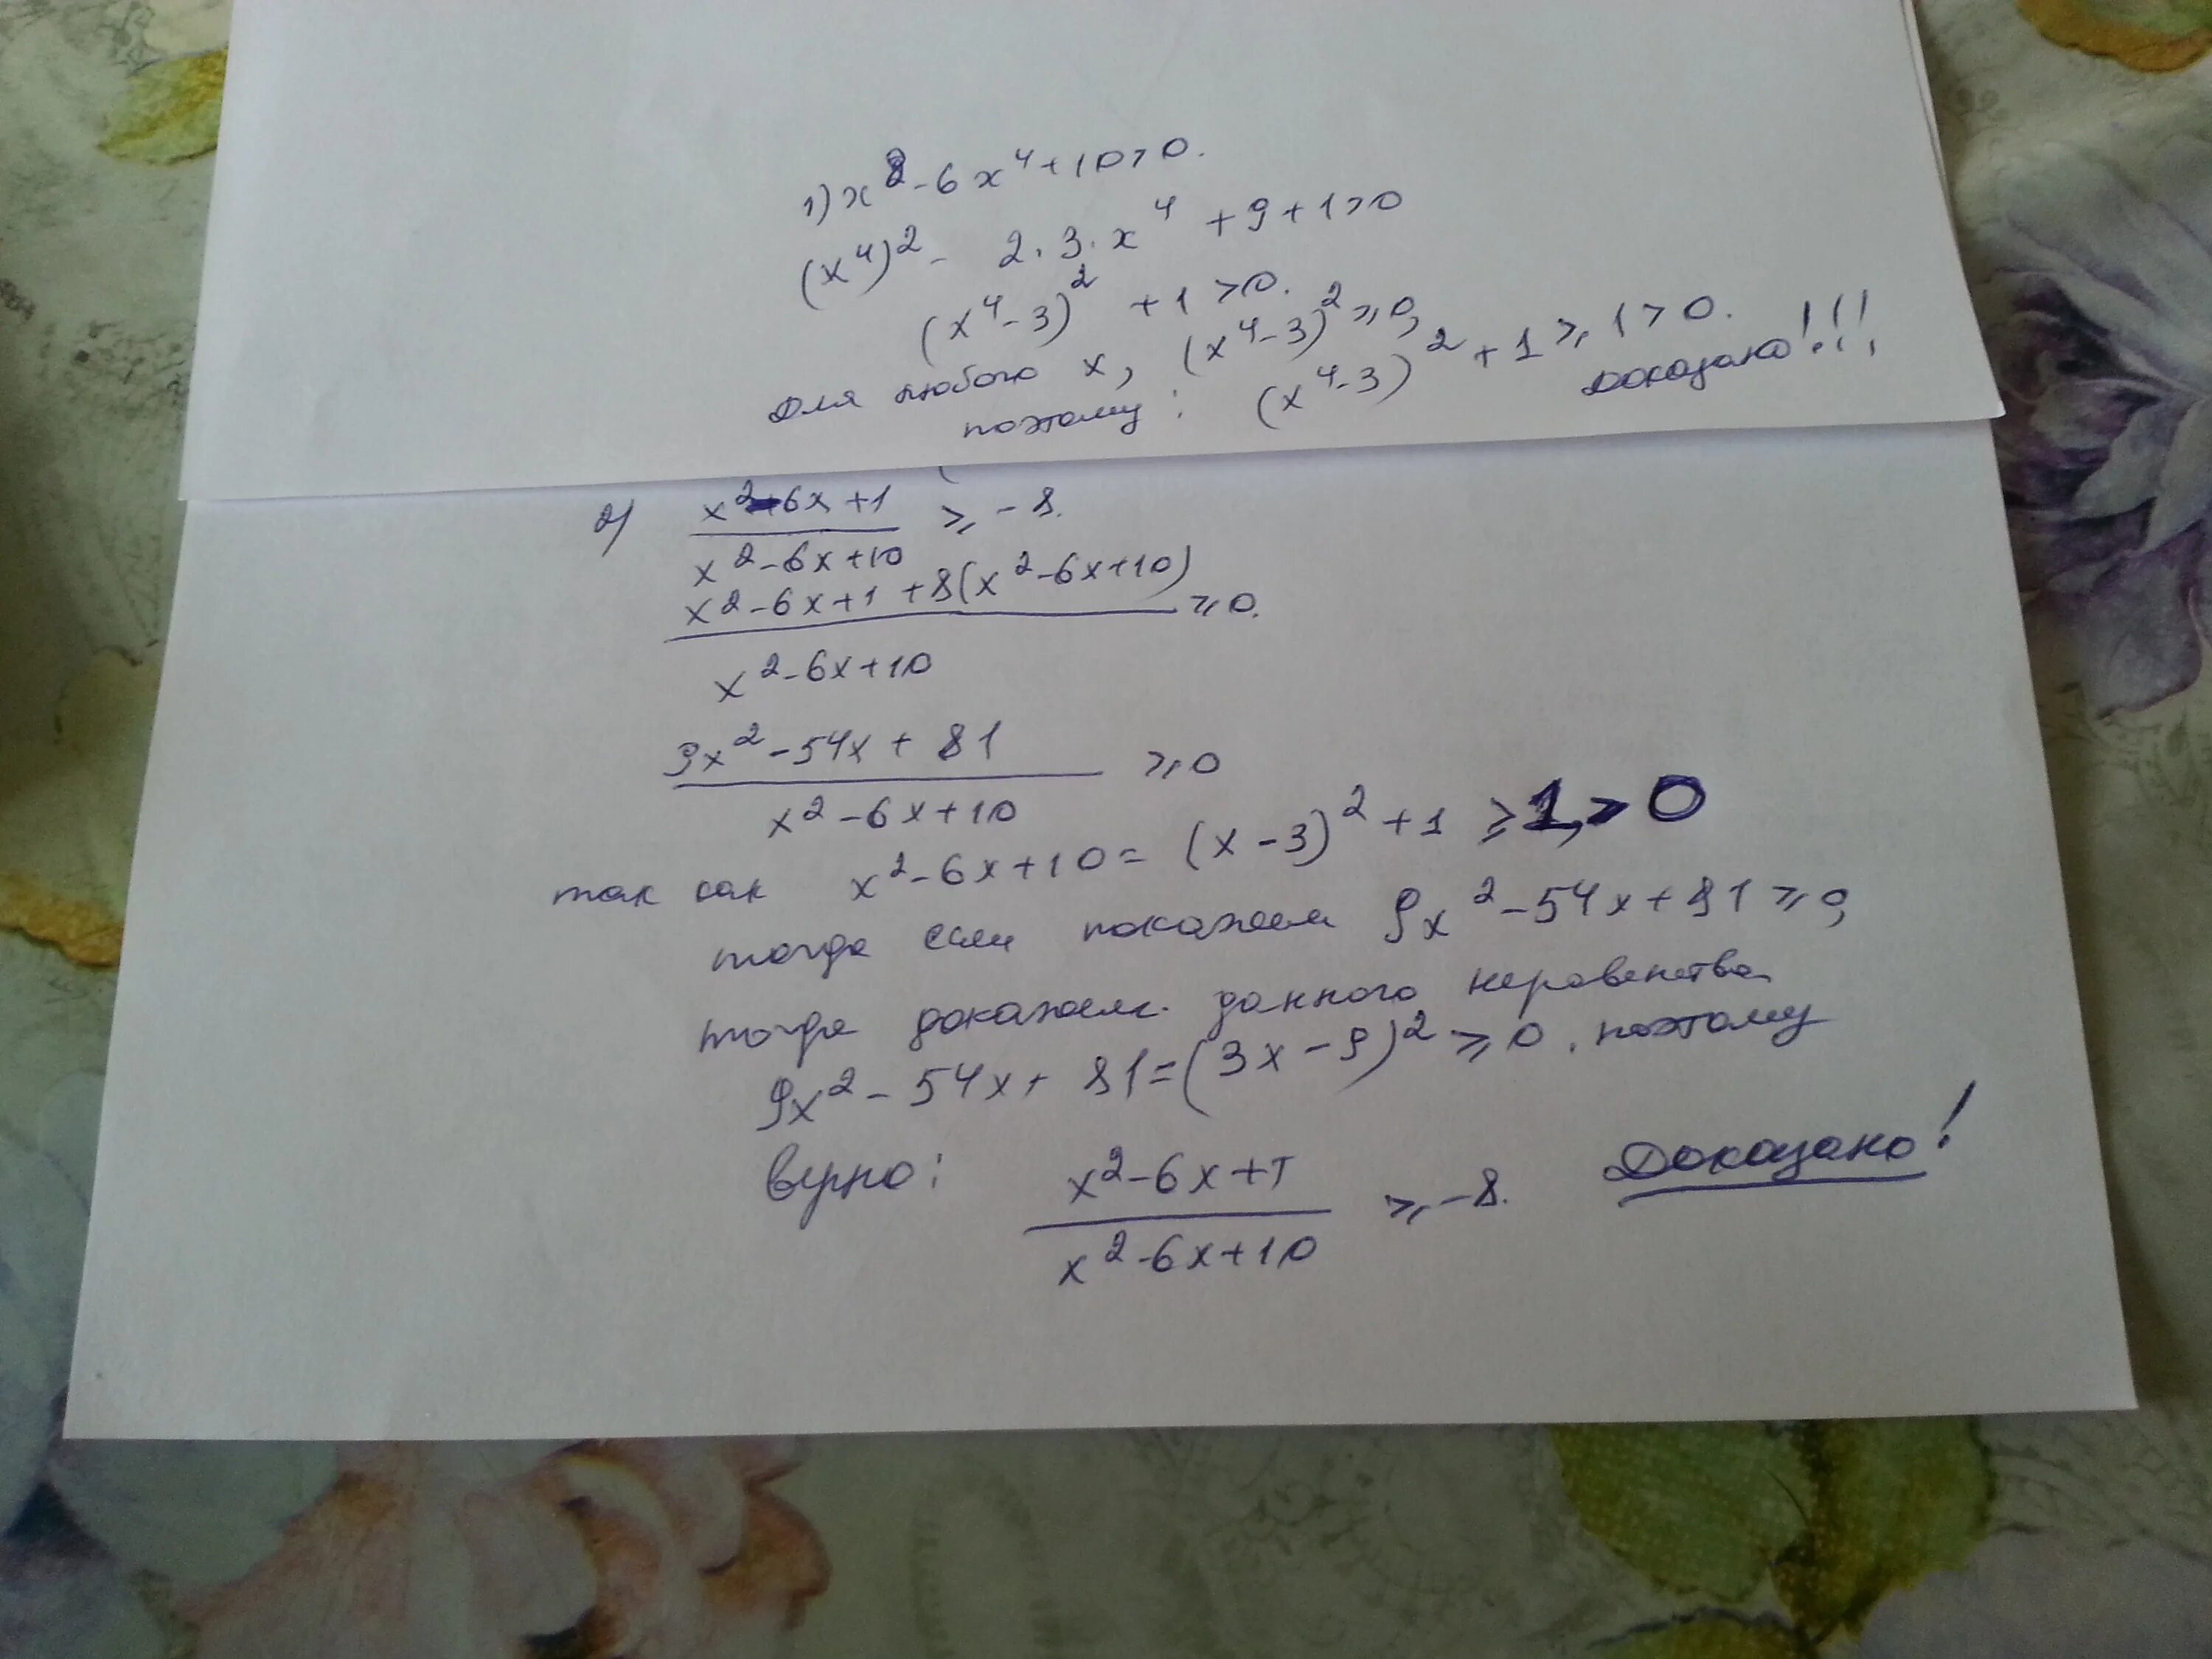 1) x⁸-6x⁴+10>0.
(x⁴)² - 2·3·x⁴ +9+1>0
(x⁴-3)² +1>0.
Для любого x, (x⁴-3)²⩾0,
поэтому: (x⁴-3)²+1⩾1>0.
Доказано!!!
2) (x²-6x+1)/(x²-6x+10) ⩾ -8.
(x²-6x+1+8(x²-6x+10))/(x²-6x+10) ⩾0.
(9x²-54x+81)/(x²-6x+10) ⩾0
так как x²-6x+10=(x-3)²+1⩾1>0
тогда если покажем 9x²-54x+81⩾0,
тогда докажем. данного неравенства
9x²-54x+81=(3x-9)²⩾0. поэтому
верно: (x²-6x+1)/(x²-6x+10) ⩾-8. Доказано!